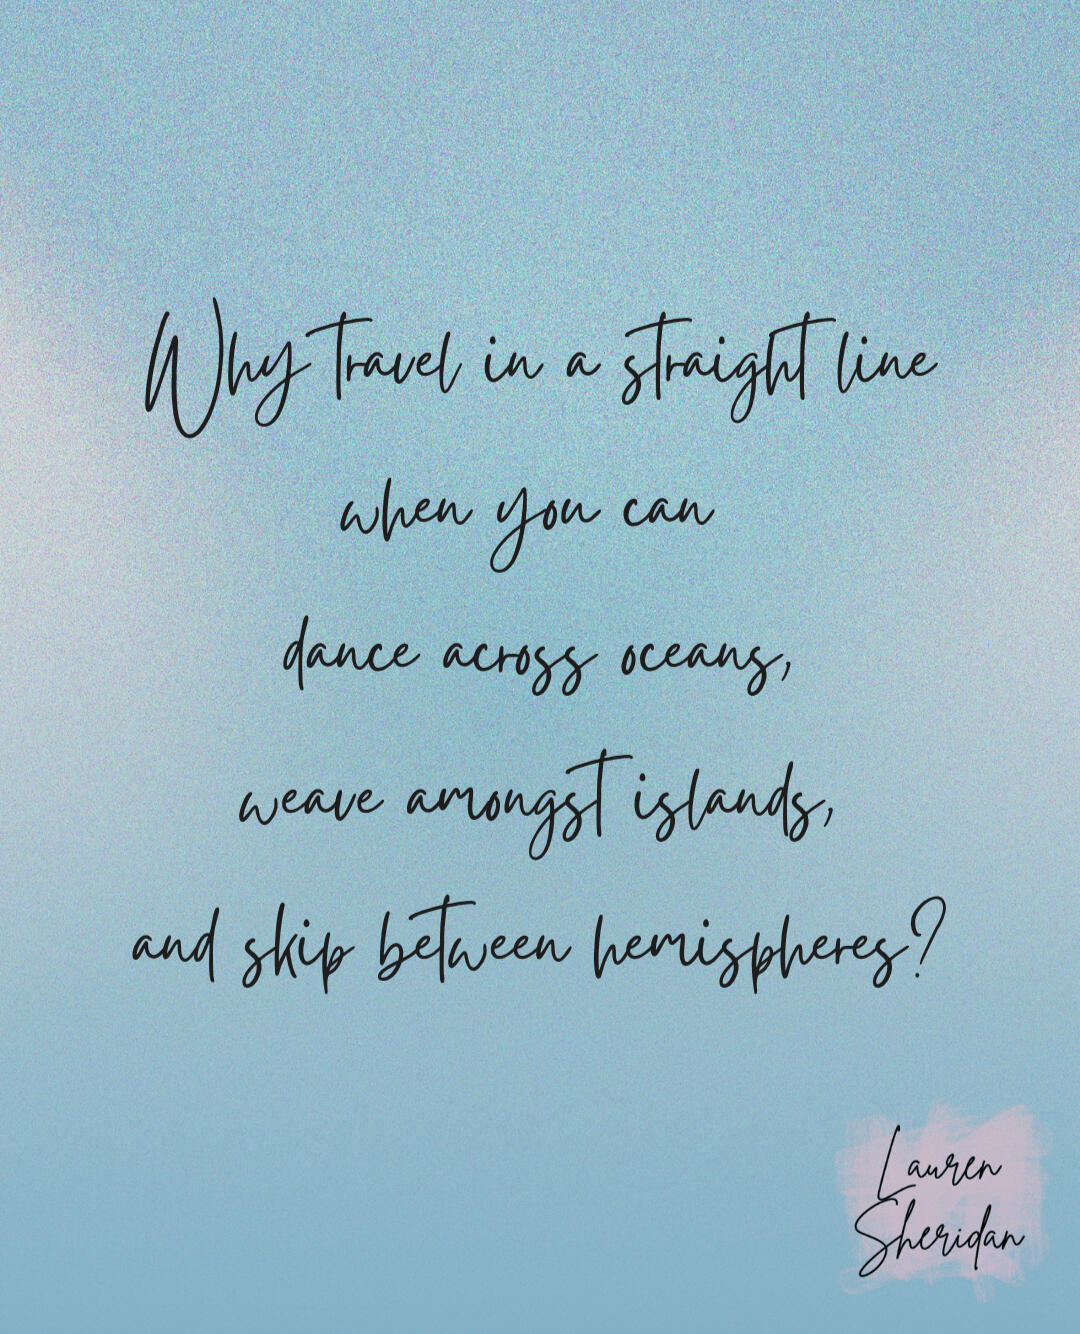 Why travel in a straight line
when you can
dance across oceans,
weave amongst islands,
and skip between hemispheres?
Lauren
Sheridan